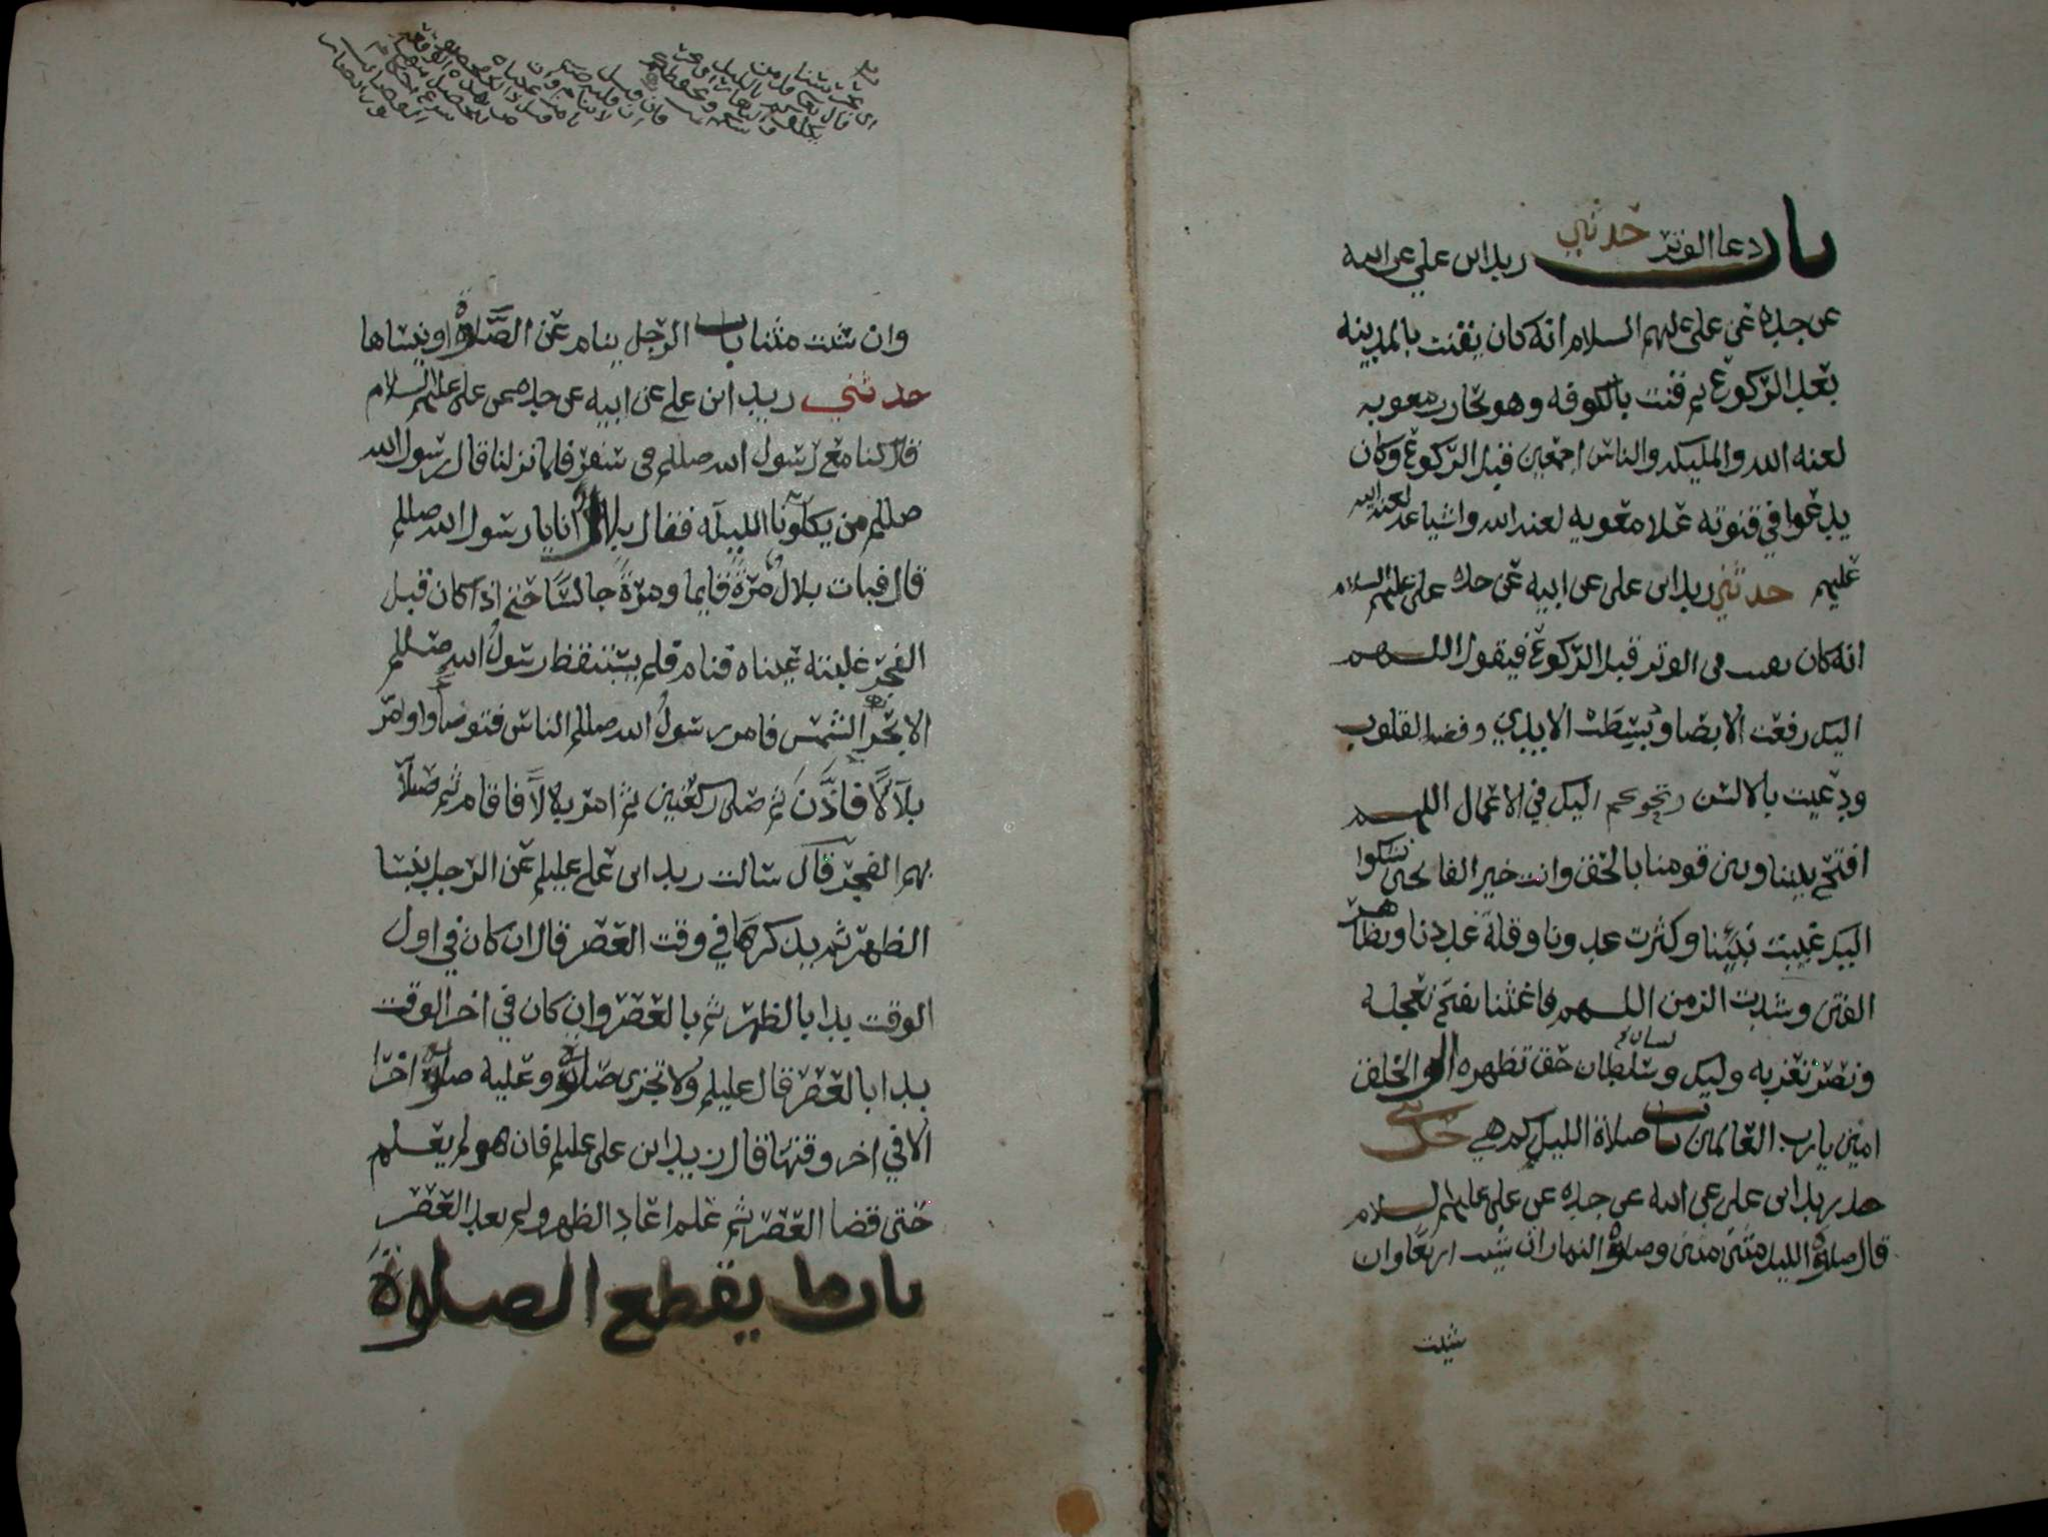 باب دعا الوتر حدثني زيد ابن علي عن ابيه
عن جده عن علي عليهم السلام انه كان يقنت بالمدينه
بعد الركوع ثم قنت بالكوفه وهو يحارب معويه
لعنه الله والمليكه والناس اجمعين قبل الركوع وكان
يدعوا في قنوته علا معويه لعنه الله واشياعه لعنه الله
عليهم حدثني زيد ابن علي عن ابيه عن جده علي عليهم السلام
انه كان يقنت في الوتر قبل الركوع فيقول اللهم
اليك رفعت الابصار وبسطت الايدي وفضت القلوب
ودعيت بالالسن وتحوكم اليك في الاعمال اللهم
افتح بيننا وبين قومنا بالحق وانت خير الفاتحين نشكوا
اليك غيبت نبينا وكثرت عدونا وقلة عددنا وتظاهر
الفتن وشدت الزمن اللهم فاغثنا بفتح تعجله
ونصر تعز به وليك وسلطان حق تظهره اله الخلق
امين يارب العالمين باب صلاة الليل كم هي حدثني
زيد ابن علي عن ابيه عن جده عن علي عليهم السلام
قال صلوة الليل مثنى مثنى وصلوة النهار ان شيت اربعا وان
شيت
وان شت مثنا باب الرجل ينام عن الصلاة او ينساها
حدثني زيد ابن علي عن ابيه عن جده عن علي عليهم السلام
قال كنا مع رسول الله صللم في سفر فلما نزلنا قال رسول الله
صللم من يكلونا الليله فقال بلال انا يا رسول الله صللم
قال فبات بلال مرة قايما ومرة جالسا حتى اذا كان قبل
الفجر غلبته عيناه فنام فلم يستيقظ رسول الله صللم
الا بحر الشمس فامر رسول الله صللم الناس فتوضاوا وامر
بلالا فاذن ثم صلى ركعتين ثم امر بلالا فاقام ثم صلا
بهم الفجر قال سالت زيد ابن علي عليلم عن الرجل ينسا
الظهر ثم يذكرها في وقت العصر قال ان كان في اول
الوقت بدا بالظهر ثم بالعصر وان كان في اخر الوقت
بدا بالعصر قال عليلم ولا تجزى صلوة وعليه صلوة اخرا
الا في اخر وقتها قال زيد ابن علي عليلم فان هو لم يعلم
حتى قضا العصر ثم علم اعاد الظهر ولم يعد العصر
باب ما يقطع الصلاة